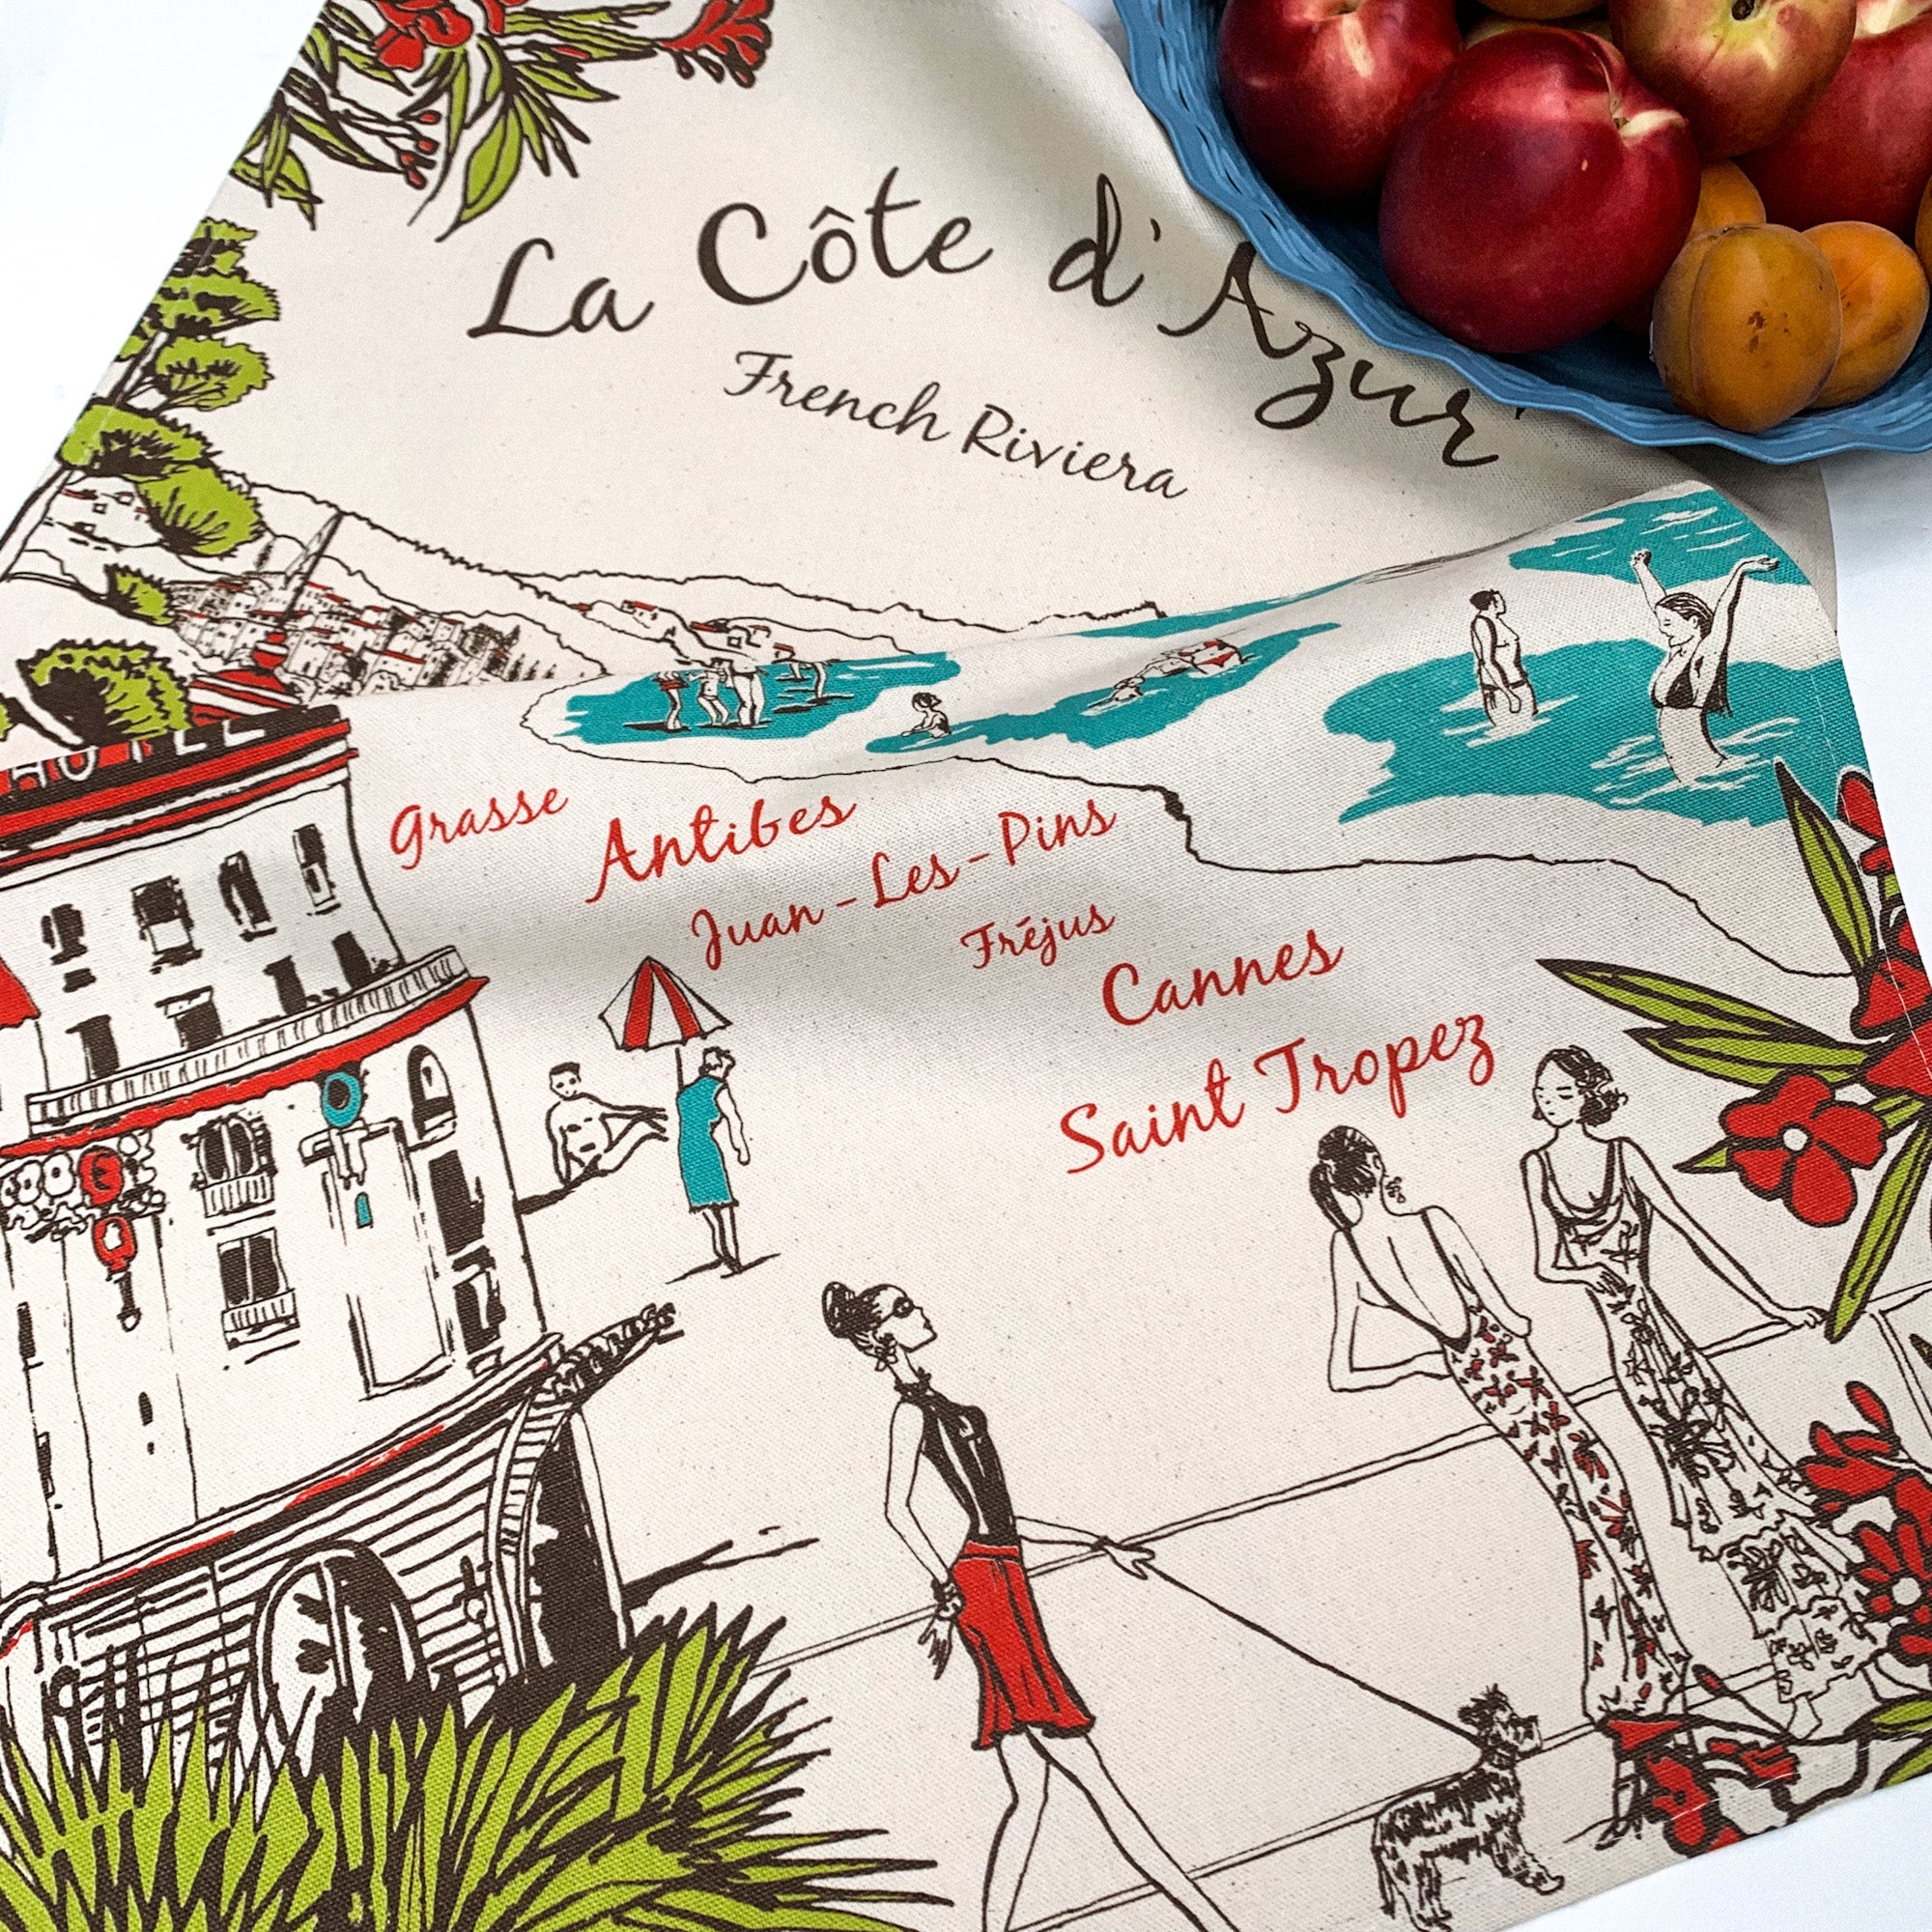 La Côte d'Azur
French Riviera
HOTEL
Grasse
Antibes
Juan-Les-Pins
Fréjus
Cannes
Saint Tropez